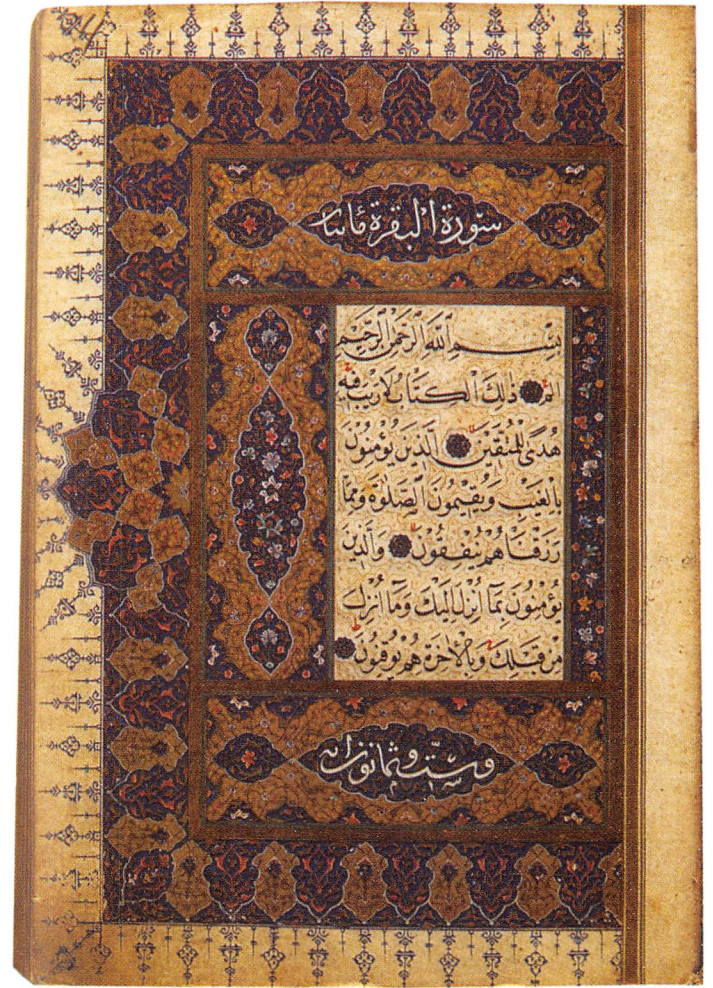 سورة البقرة مائتا
بِسْمِ اللَّهِ الرَّحْمٰنِ الرَّحِيمِ
الم ذٰلِكَ الْكِتَابُ لَا رَيْبَ فِيهِ
هُدًى لِلْمُتَّقِينَ الَّذِينَ يُؤْمِنُونَ
بِالْغَيْبِ وَيُقِيمُونَ الصَّلٰوةَ وَمِمَّا
رَزَقْنَاهُمْ يُنْفِقُونَ وَالَّذِينَ
يُؤْمِنُونَ بِمَا أُنْزِلَ إِلَيْكَ وَمَا أُنْزِلَ
مِنْ قَبْلِكَ وَبِالْاٰخِرَةِ هُمْ يُوقِنُونَ
وست وثمانون